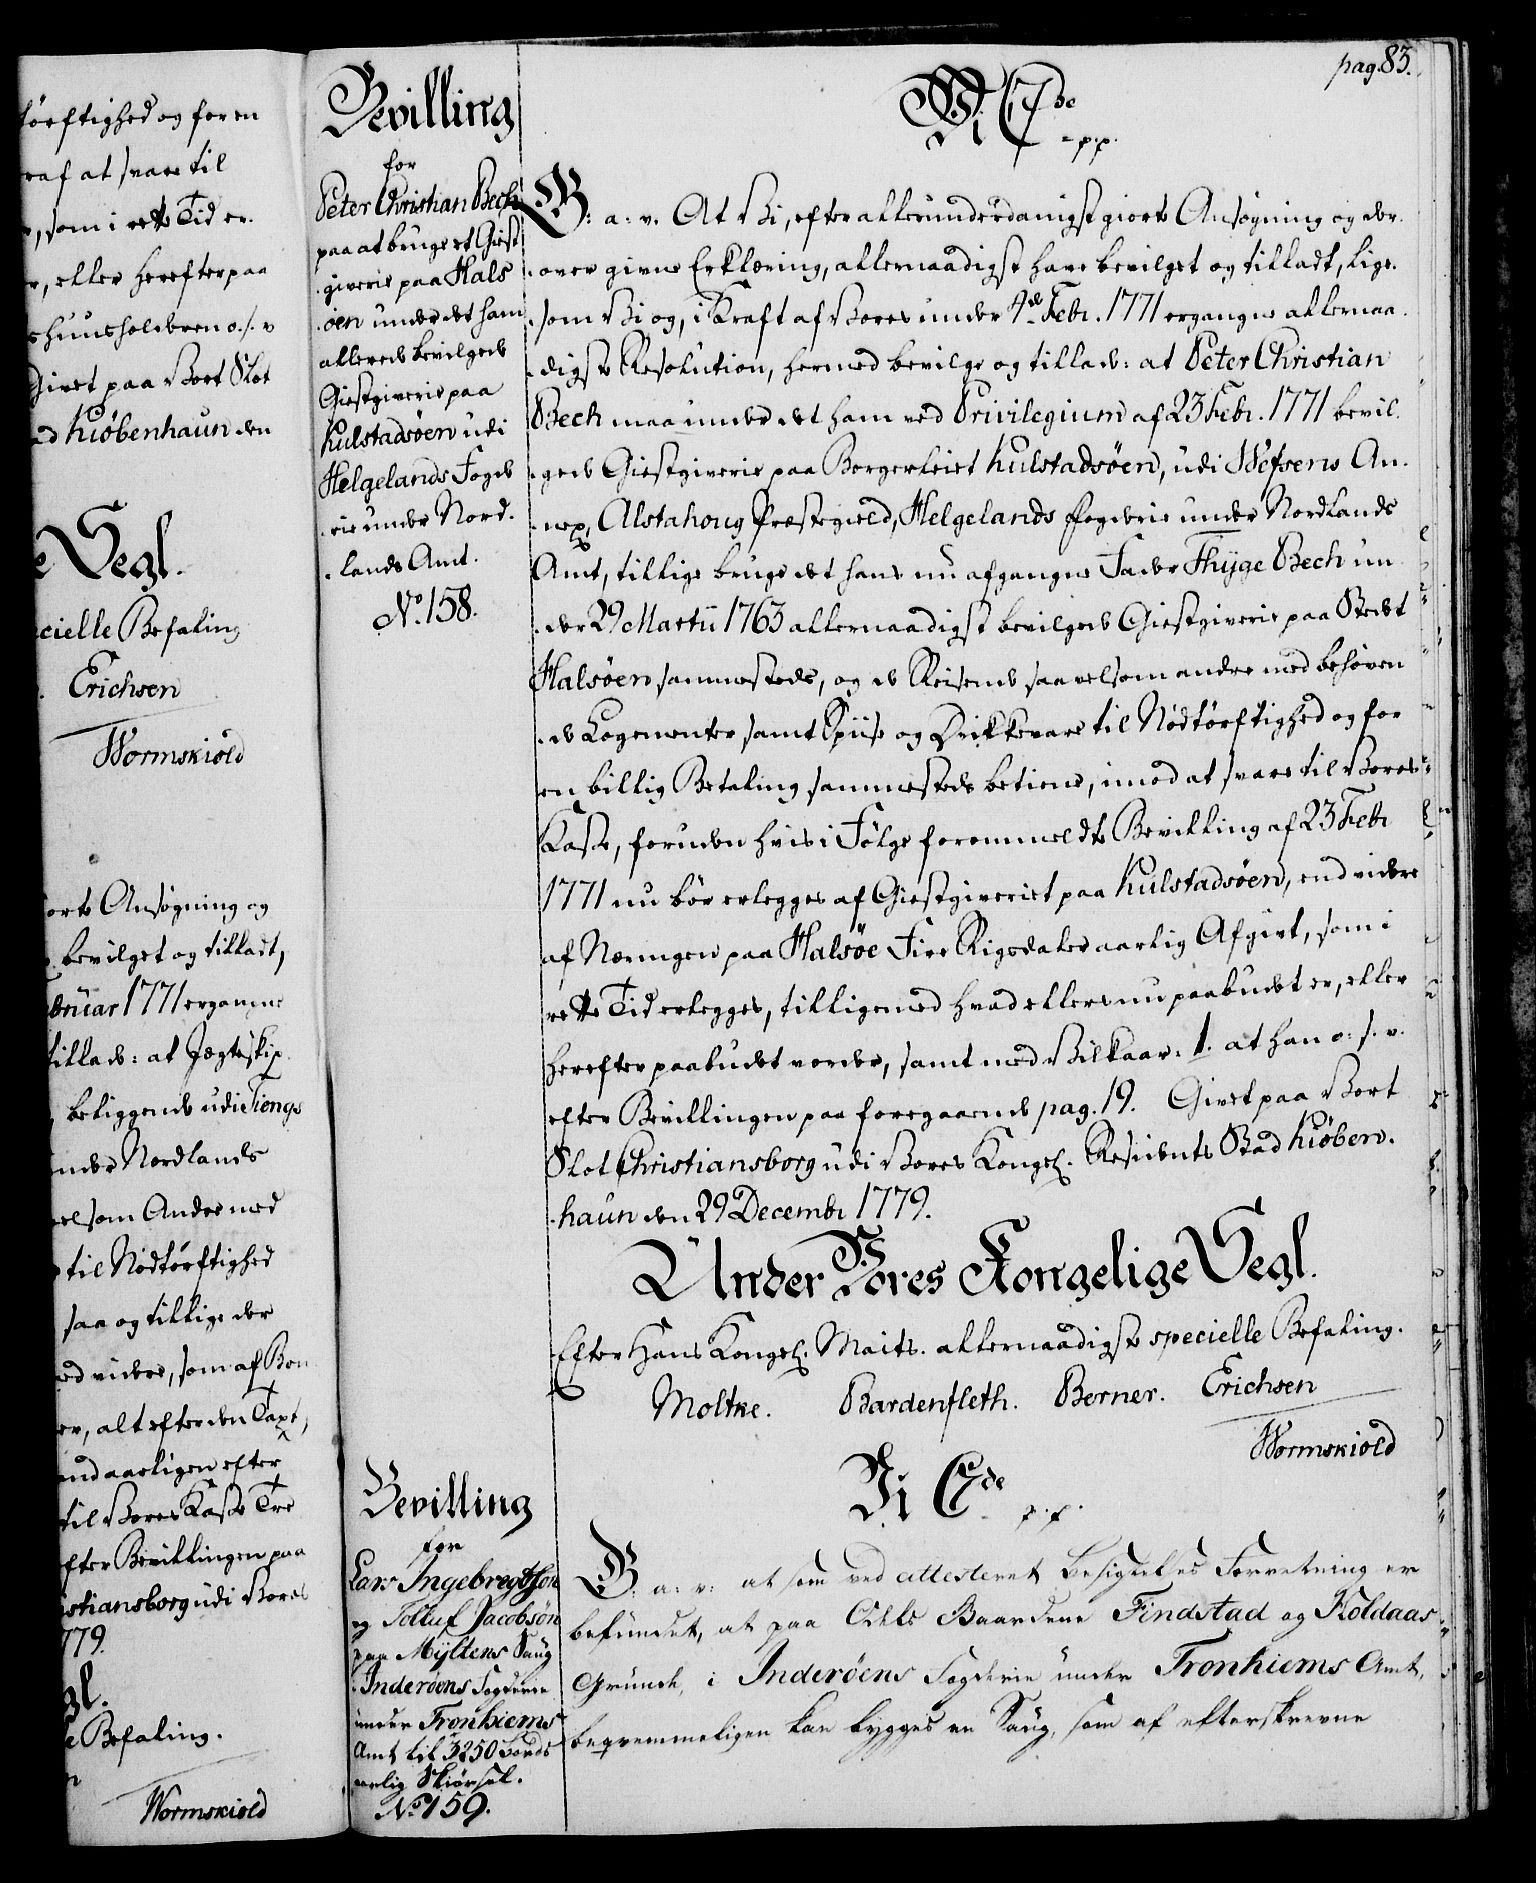 pag. 83.
törftighed og for en
raf at svare til
, som i rette Tid er
, eller herefter paa
shuusholderen o. s. v
Givet paa Vort Slot
ad Kiøbenhaun den
e Segl.
ecielle Befaling
Erichsen
Wormskiold
orte Ansøgning og
bevilget og tilladt,
bruar 1771 ergangne
tillade: at Jægteskip
beliggende udi Tiengs
under Nordlands
velsom Andre med
til Nødtørftighed
saa og tillige der
ed videre, som af Bon
er, alt efter den Taxt,
end aarligen efter
til Vores Kasse Tre
efter Bevillingen paa
istiansborg udi Vores
779.
gl.
e Befaling.
Wormskiold
Bevilling
for
Peter Christian Bech
paa at bruge et Giest
giverie paa Hals
øen under det ham
allerede bevilgede
Giestgiverie paa
Kulstadsöen udi
Helgelands Fogde
rie under Nord.
lands Amt.
No. 158.
Vi C 7de pp.
G: a: v. At Vi, efter allerunderdanigst giorte Ansøgning og der.
over givne Erklæring, allernaadigst have bevilget og tilladt, lige.
som Vi og, i Kraft af Vores under 4de Febr. 1771 ergangne allernaa.
digste Resolution, hermed bevilge og tillade: at Peter Christian
Bech maa under det ham ved Privilegium af 23 Febr. 1771 bevil.
gede Giestgiverie paa Borgerleiet Kulstadsöen, udi Wefsens An.
nex, Alstahoug Præstegield, Helgelands Fogderie under Nordlands
Amt, tillige bruge det hans nu afgangne Fader Thyge Bech un
der 29 Martii 1763 allernaadigst bevilgede Giestgiverie paa Stedet
Halsöen sammesteds, og de Reisende saavelsom andre med behøven
de Logementer, samt Spiise og Drikkevare til Nødtörftighed og for
en billig Betaling sammesteds betiene, imod at svare til Vores
Kasse, foruden hvis i Følge forommeldte Bevilling af 23 Febr
1771 nu bör erlegges af Giestgiveriet paa Kulstadsöen, end videre
af Næringen paa Halsöe Fire Rigsdaler aarlig Afgivt, som i
rette Tid erlegges, tilligemed hvad ellers nu paabudet er, eller
herefter paabudet vorder, samt med Vilkaar: 1. at han o: s: v.
efter Bevillingen paa foregaaende pag. 19. Givet paa Vort
Slot Christiansborg udi Vores Kongel. Residents Stad Kiøben.
haun den 29 Decembr 1779.
Under Vores Kongelige Segl.
Efter Hans Kongel. Maits. allernaadigste specielle Befaling.
Moltke. Bardenfleth. Berner. Erichsen
Wormskiold
Bevilling
for
Lars Ingebregtsön
og Tolluf Jacobsön
paa Myltens Saug
Inderøens Fogderie
under Tronhiems
Amt til 3250 Bords
aarlig Skiørsel.
No. 159.
Vi C 7de p. p.
G. a: v: at som ved attesteret Besigtelses Forretning er
befundet, at paa Odels Gaardene Findstad og Koldaas
Grunde, i Inderøens Fogderie under Tronhiems Amt,
beqvemmeligen kan bygges en Saug, som af efterskrevne